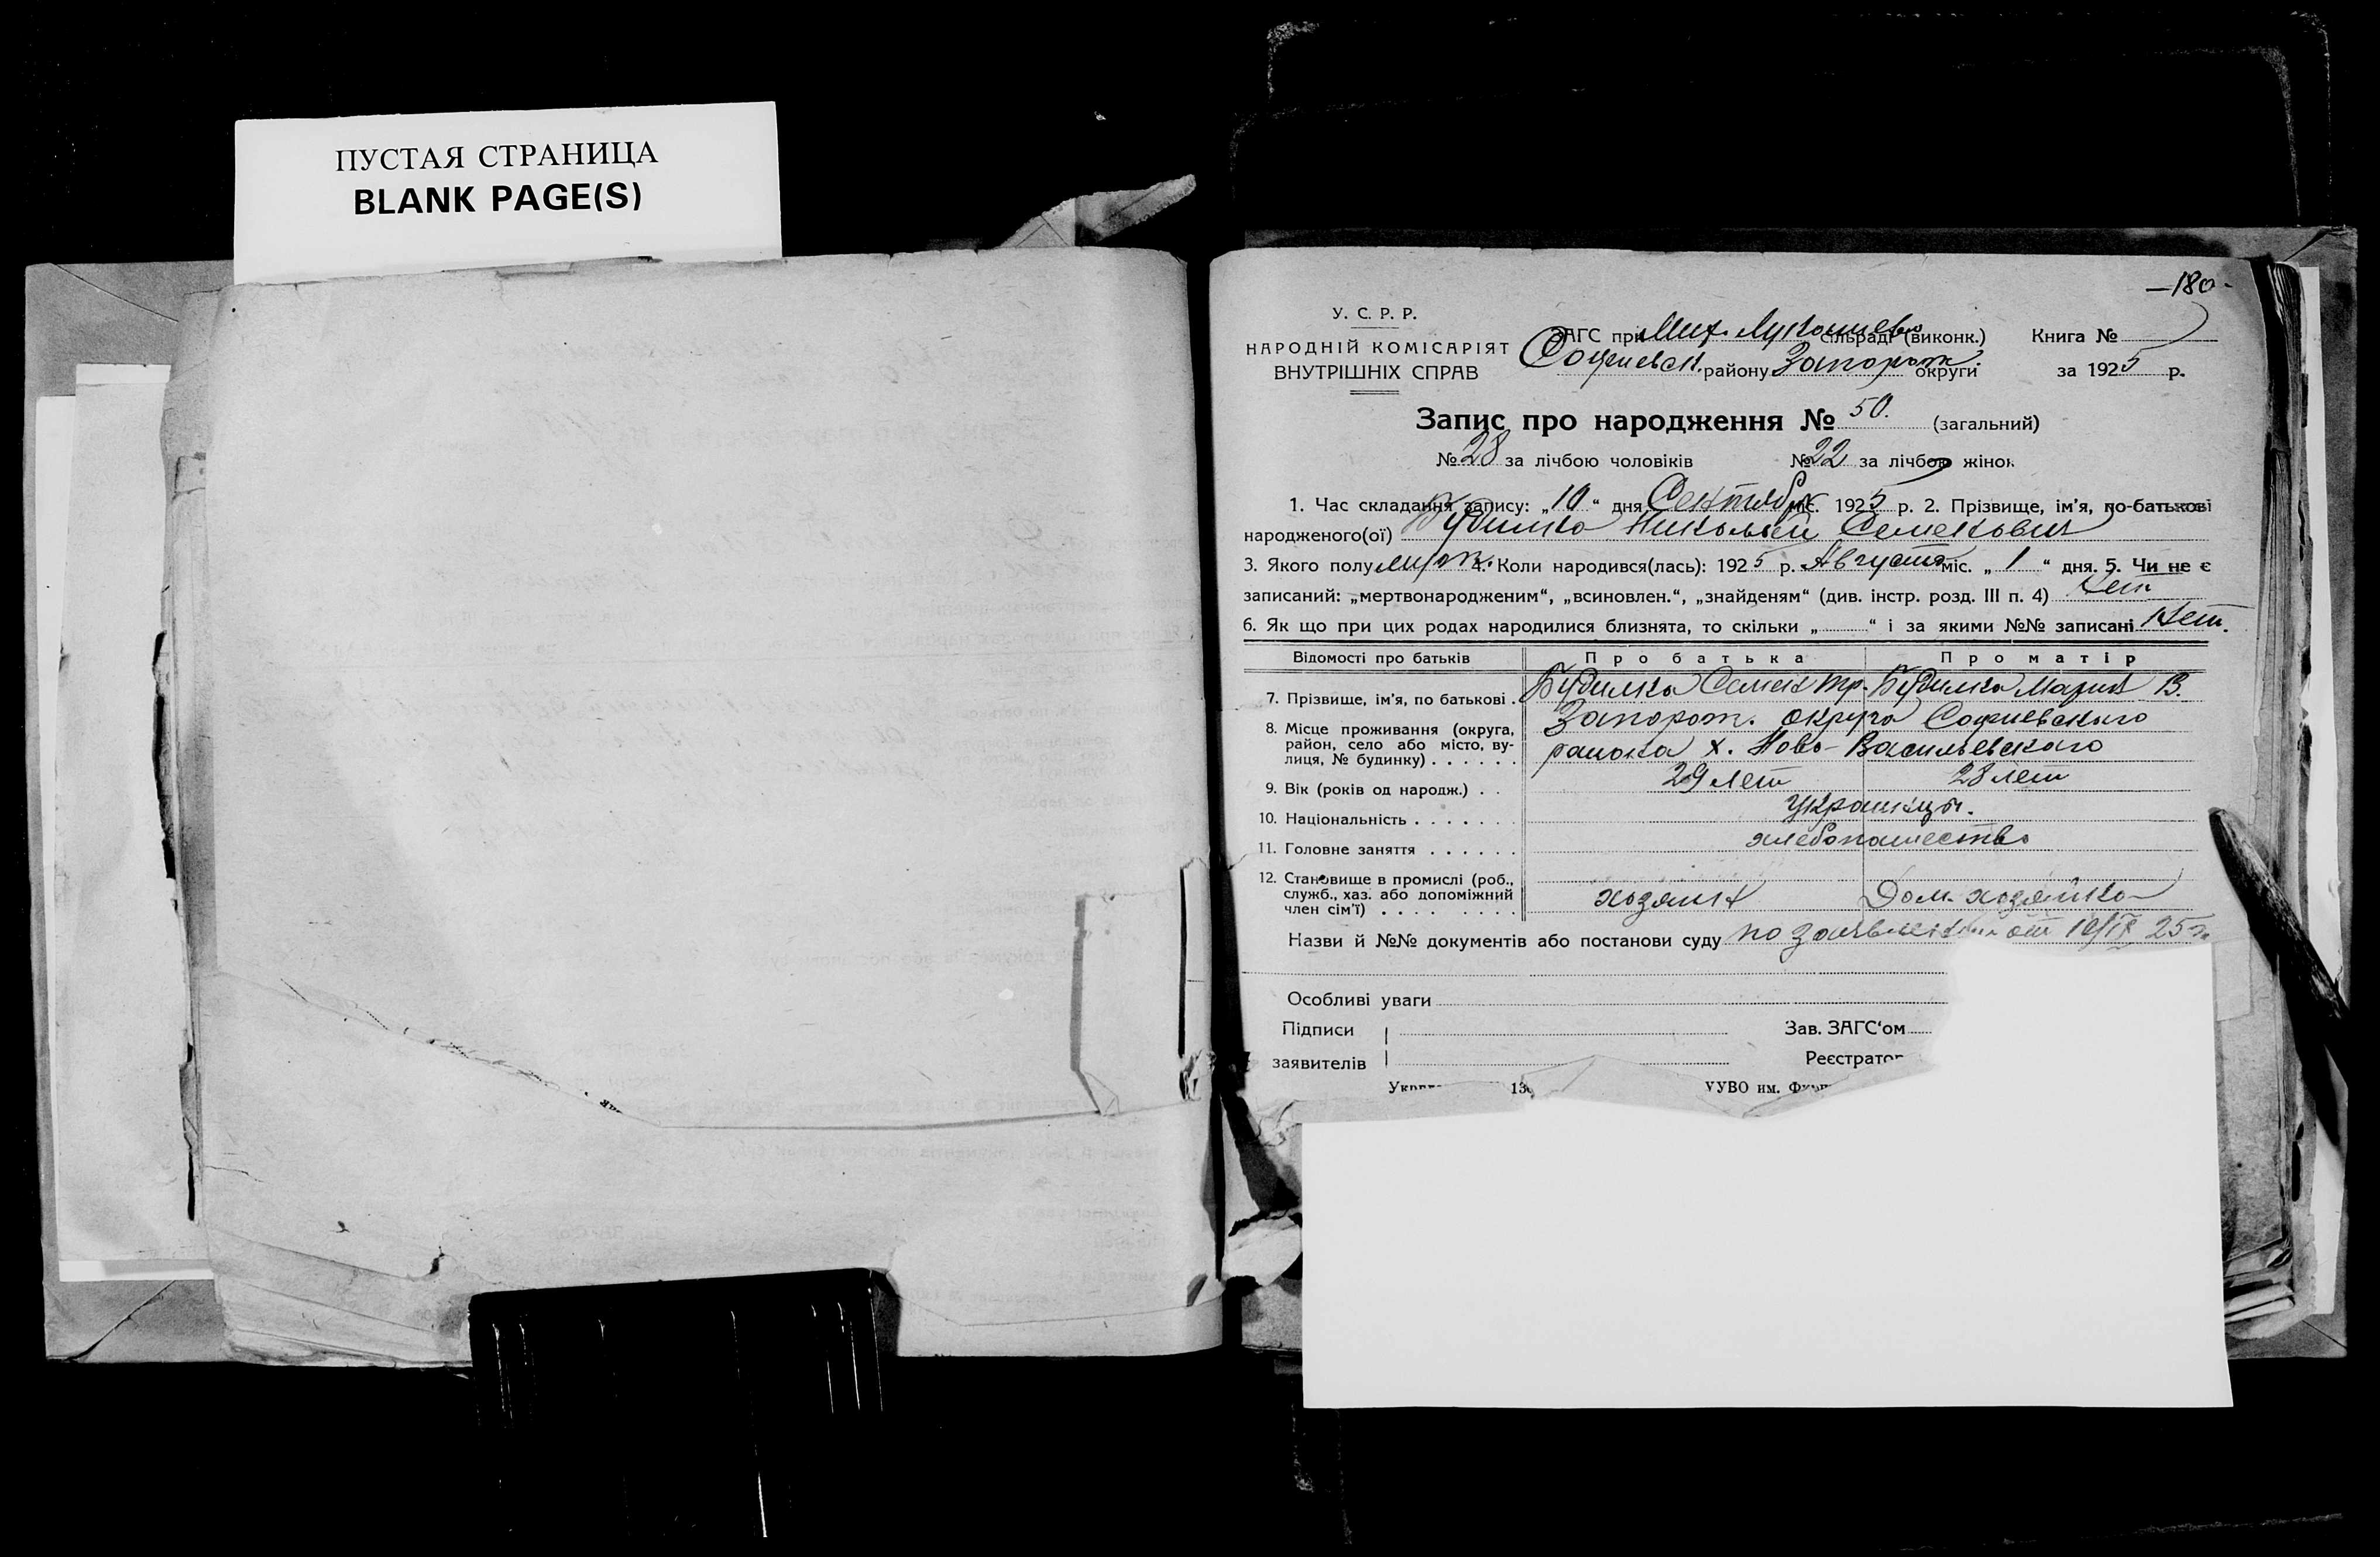 ПУСТАЯ СТРАНИЦА
BLANK PAGE(S)
—180-
У. С. Р. Р.
НАРОДНІЙ КОМІСАРІЯТ
ВНУТРІШНІХ СПРАВ
ЗАГС при Мих. Лукашево сільраді (виконк.)
Софиевск. району Запорож. округи
Книга №
за 1925 р.
Запис про народження № 50. (загальний)
№ 28 за лічбою чоловіків № 22 за лічбою жінок
1. Час складання запису: „10“ дня Сентября міс. 1925 р. 2. Прізвище, ім’я, по-батькові
народженого(ої) Будилка Николай Семенович
3. Якого полу муж. 4. Коли народився(лась): 1925 р. Августа міс. „1“ дня. 5. Чи не є
записаний: „мертвонародженим“, „всиновлен.“, „знайденям“ (див. інстр. розд. III п. 4) Нет
6. Як що при цих родах народилися близнята, то скільки „ “ і за якими №№ записані Нет.
Відомості про батьків Про батька Про матір
7. Прізвище, ім’я, по батькові . Будилка Семен Тр. Будилка Мария В.
8. Місце проживання (округа, Запорож. округа Софиевского
район, село або місто, ву- района х. Ново-Васильевского
лиця, № будинку) . . . . . .
9. Вік (років од народж.) . . 29 лет 28 лет
10. Національність . . . . . . . украинцы.
11. Головне заняття . . . . . . хлебопашество
12. Становище в промислі (роб.,
служб., хаз. або допоміжний хозяин Дом. хозяйка
член сім’ї) . . . . . . . .
Назви й №№ документів або постанови суду по заявлению от 10/IX 25 г.
Особливі уваги
Підписи
заявителів
Зав. ЗАГС‘ом
Реєстратор
УУВО им.